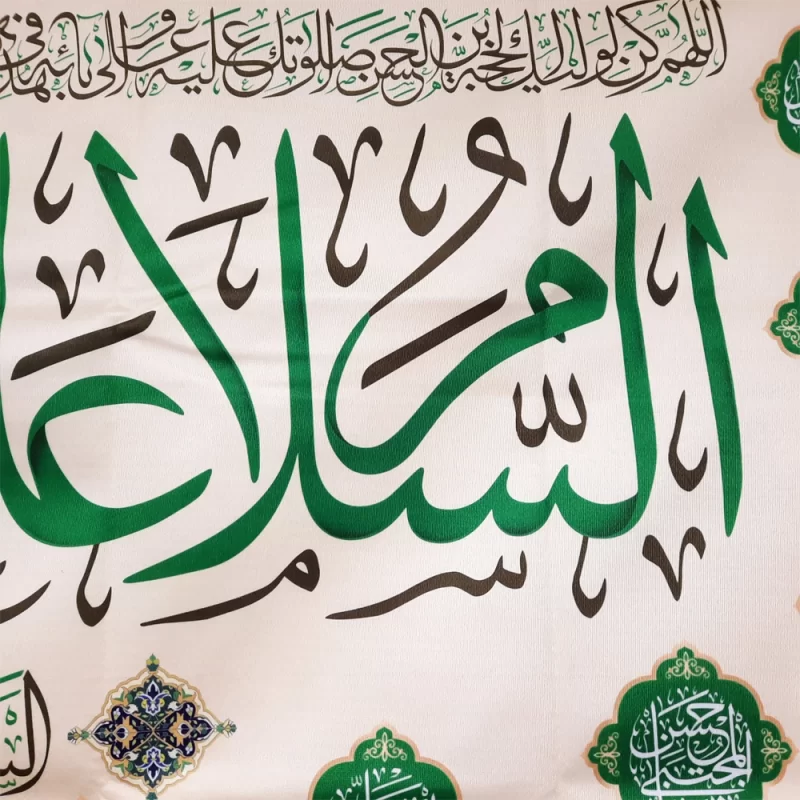 اللّهُمَّ كُنْ لِوَلِيِّكَ الحُجَّةِ بْنِ الحَسَنِ صَلَواتُكَ عَلَيْهِ وَعَلى آبائِهِ في
السَّلامُ
حسن المجتبى